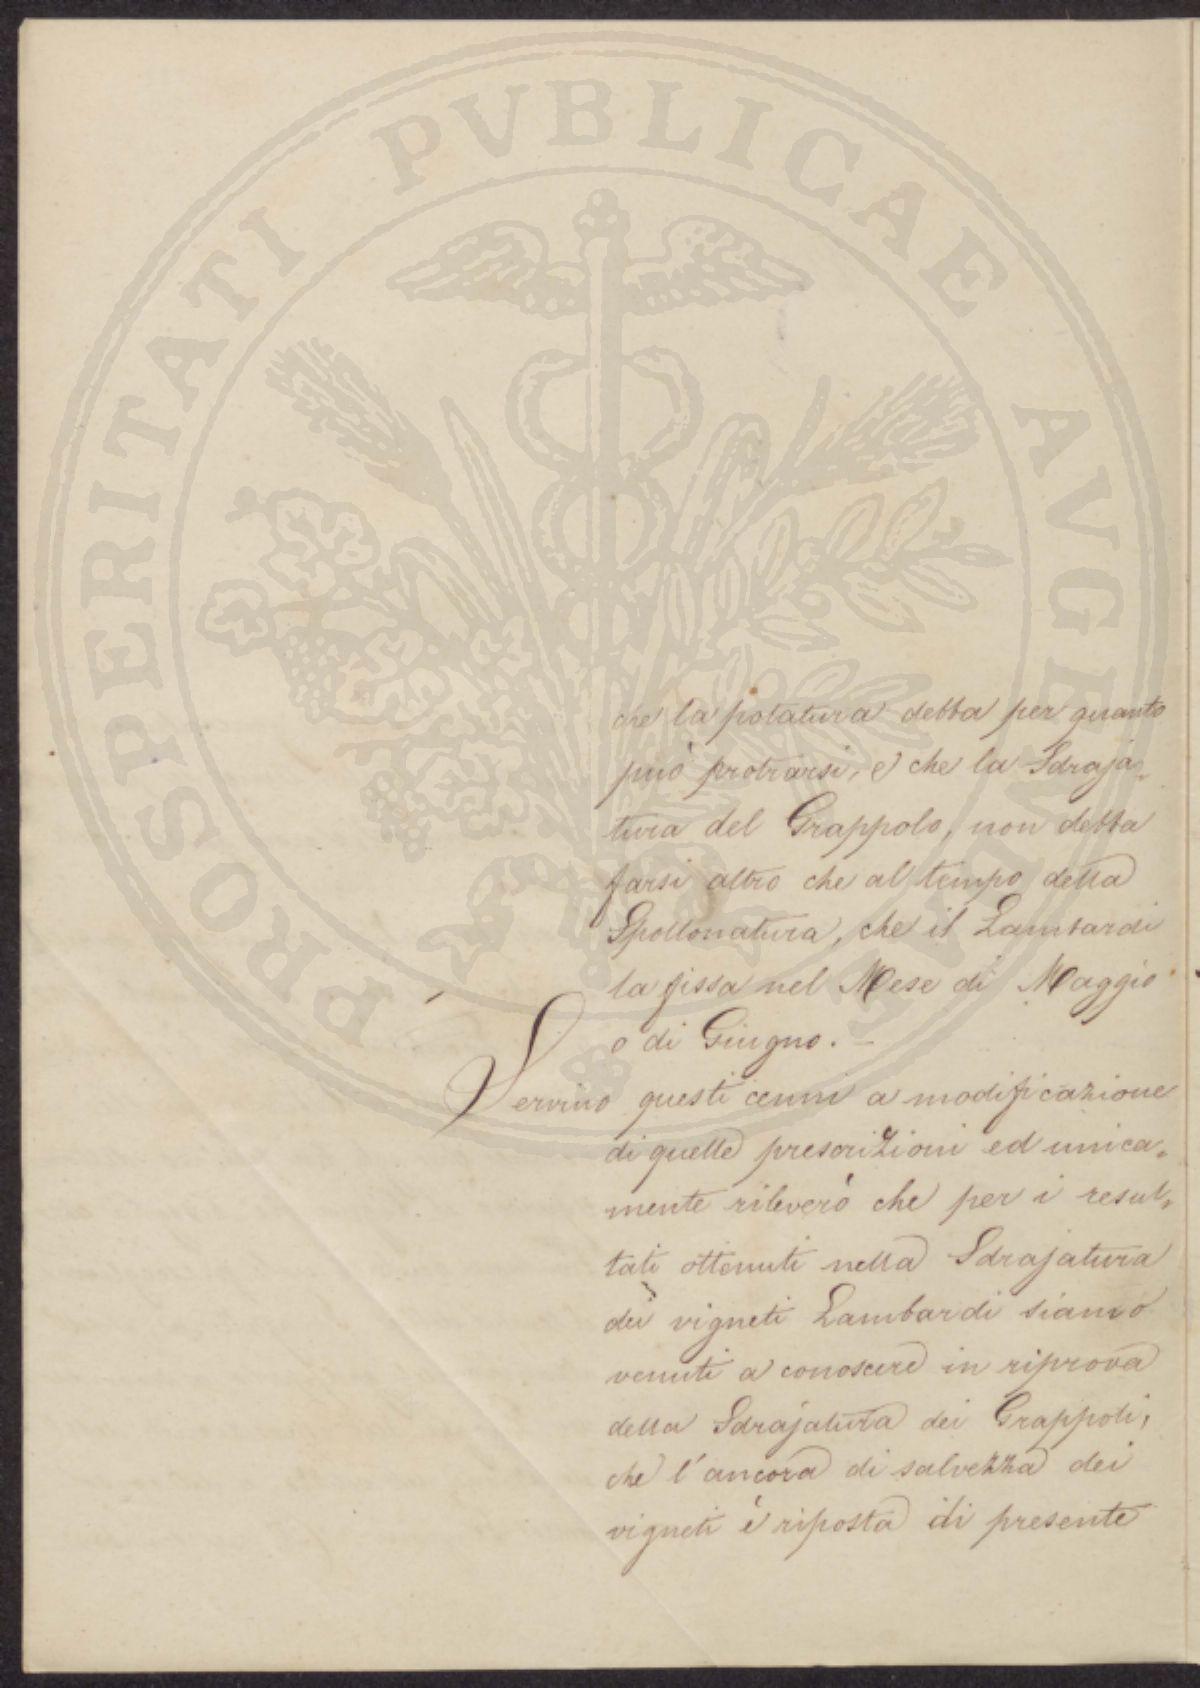 PROSPERITATI PVBLICAE AVGENDAE
che la potatura debba per quanto
può protrarsi, e che la Sdraja=
tura del Grappolo, non debba
farsi altro che al tempo della
Spollonatura, che il Lambardi
la fissa nel Mese di Maggio
o di Giugno. —
Servino questi cenni a modificazione
di quelle prescrizioni ed unica=
mente rileverò che per i resul=
tati ottenuti nella Sdrajatura
dei vigneti Lambardi siamo
venuti a conoscere in riprova
della Sdrajatura dei Grappoli,
che l'ancora di salvezza dei
vigneti è riposta di presente